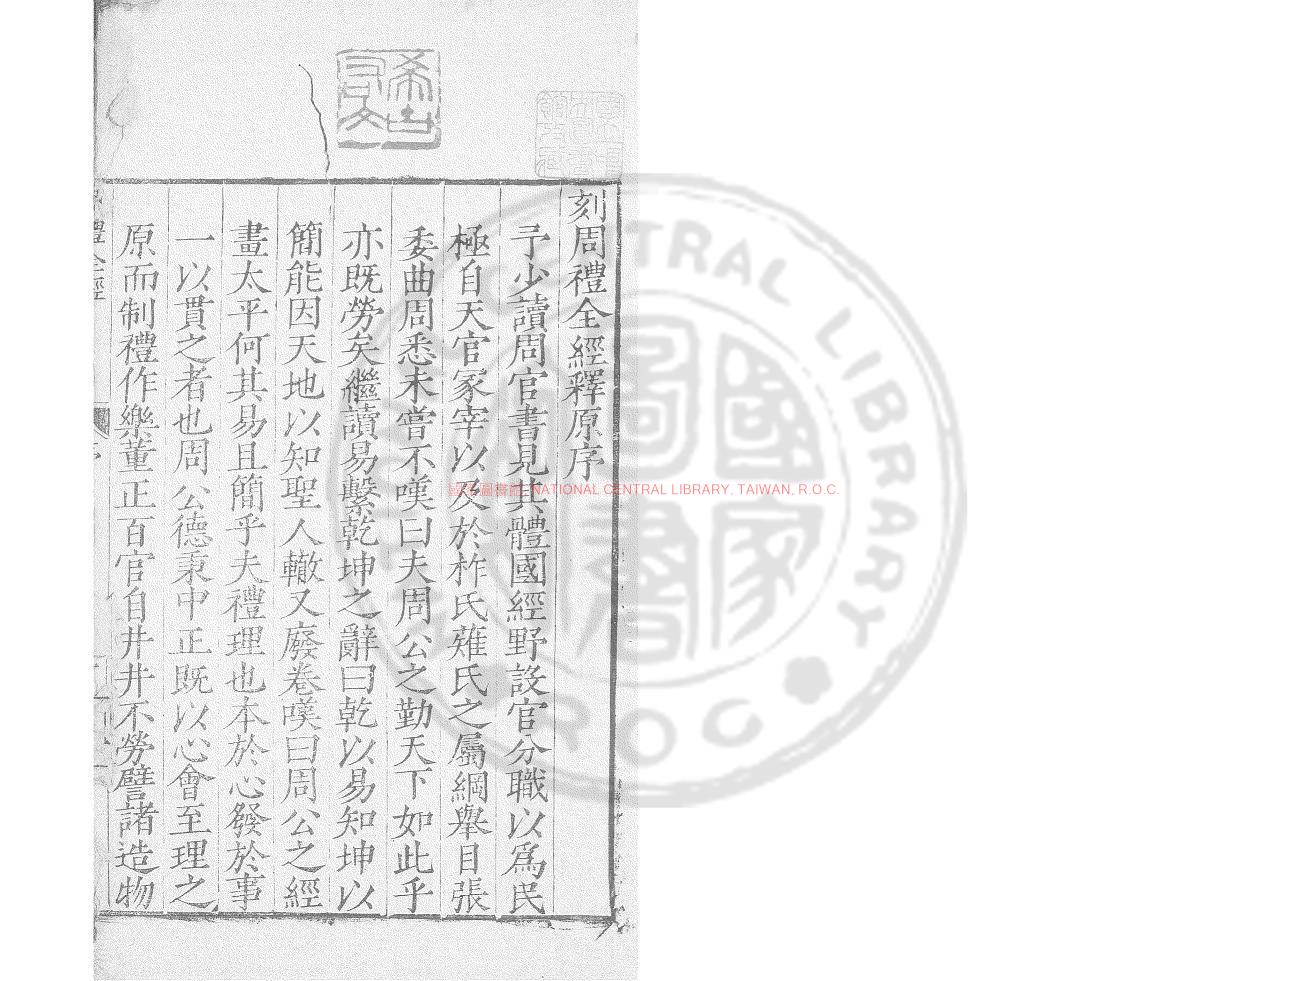 刻周禮全經釋原序
予少讀周官書見其體國經野設官分職以爲民
極自天官冢宰以及於柞氏薙氏之屬綱舉目張
委曲周悉未嘗不嘆曰夫周公之勤天下如此乎
亦既勞矣繼讀易繫乾坤之辭曰乾以易知坤以
簡能因天地以知聖人轍又廢卷嘆曰周公之經
畫太平何其易且簡乎夫禮理也本於心發於事
一以貫之者也周公德秉中正既以心會至理之
原而制禮作樂董正百官自井井不勞譬諸造物
國家圖書館 NATIONAL CENTRAL LIBRARY, TAIWAN, R.O.C.
CENTRAL LIBRARY
R.O.C
國家圖書
希古
右文